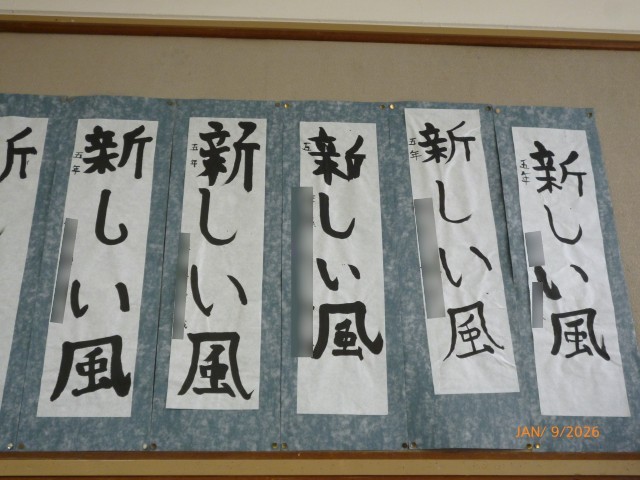 新しい風
五年
新しい風
五年
新しい風
五
新しい風
五年
新しい風
五年
JAN/ 9/2026